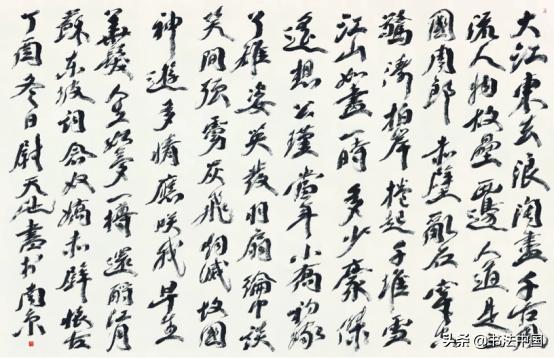 大江東去浪淘盡千古風
流人物故壘西邊人道是三
國周郎赤壁亂石穿空
驚濤拍岸捲起千堆雪
江山如畫一時多少豪傑
遙想公瑾當年小喬初嫁
了雄姿英發羽扇綸巾談
笑間强虜灰飛烟滅故國
神遊多情應咲我早生
華髮人生如夢一樽還酹江月
蘇東坡詞念奴嬌赤壁懷古
丁酉冬日尉天池書於南京
头条 @书法中国